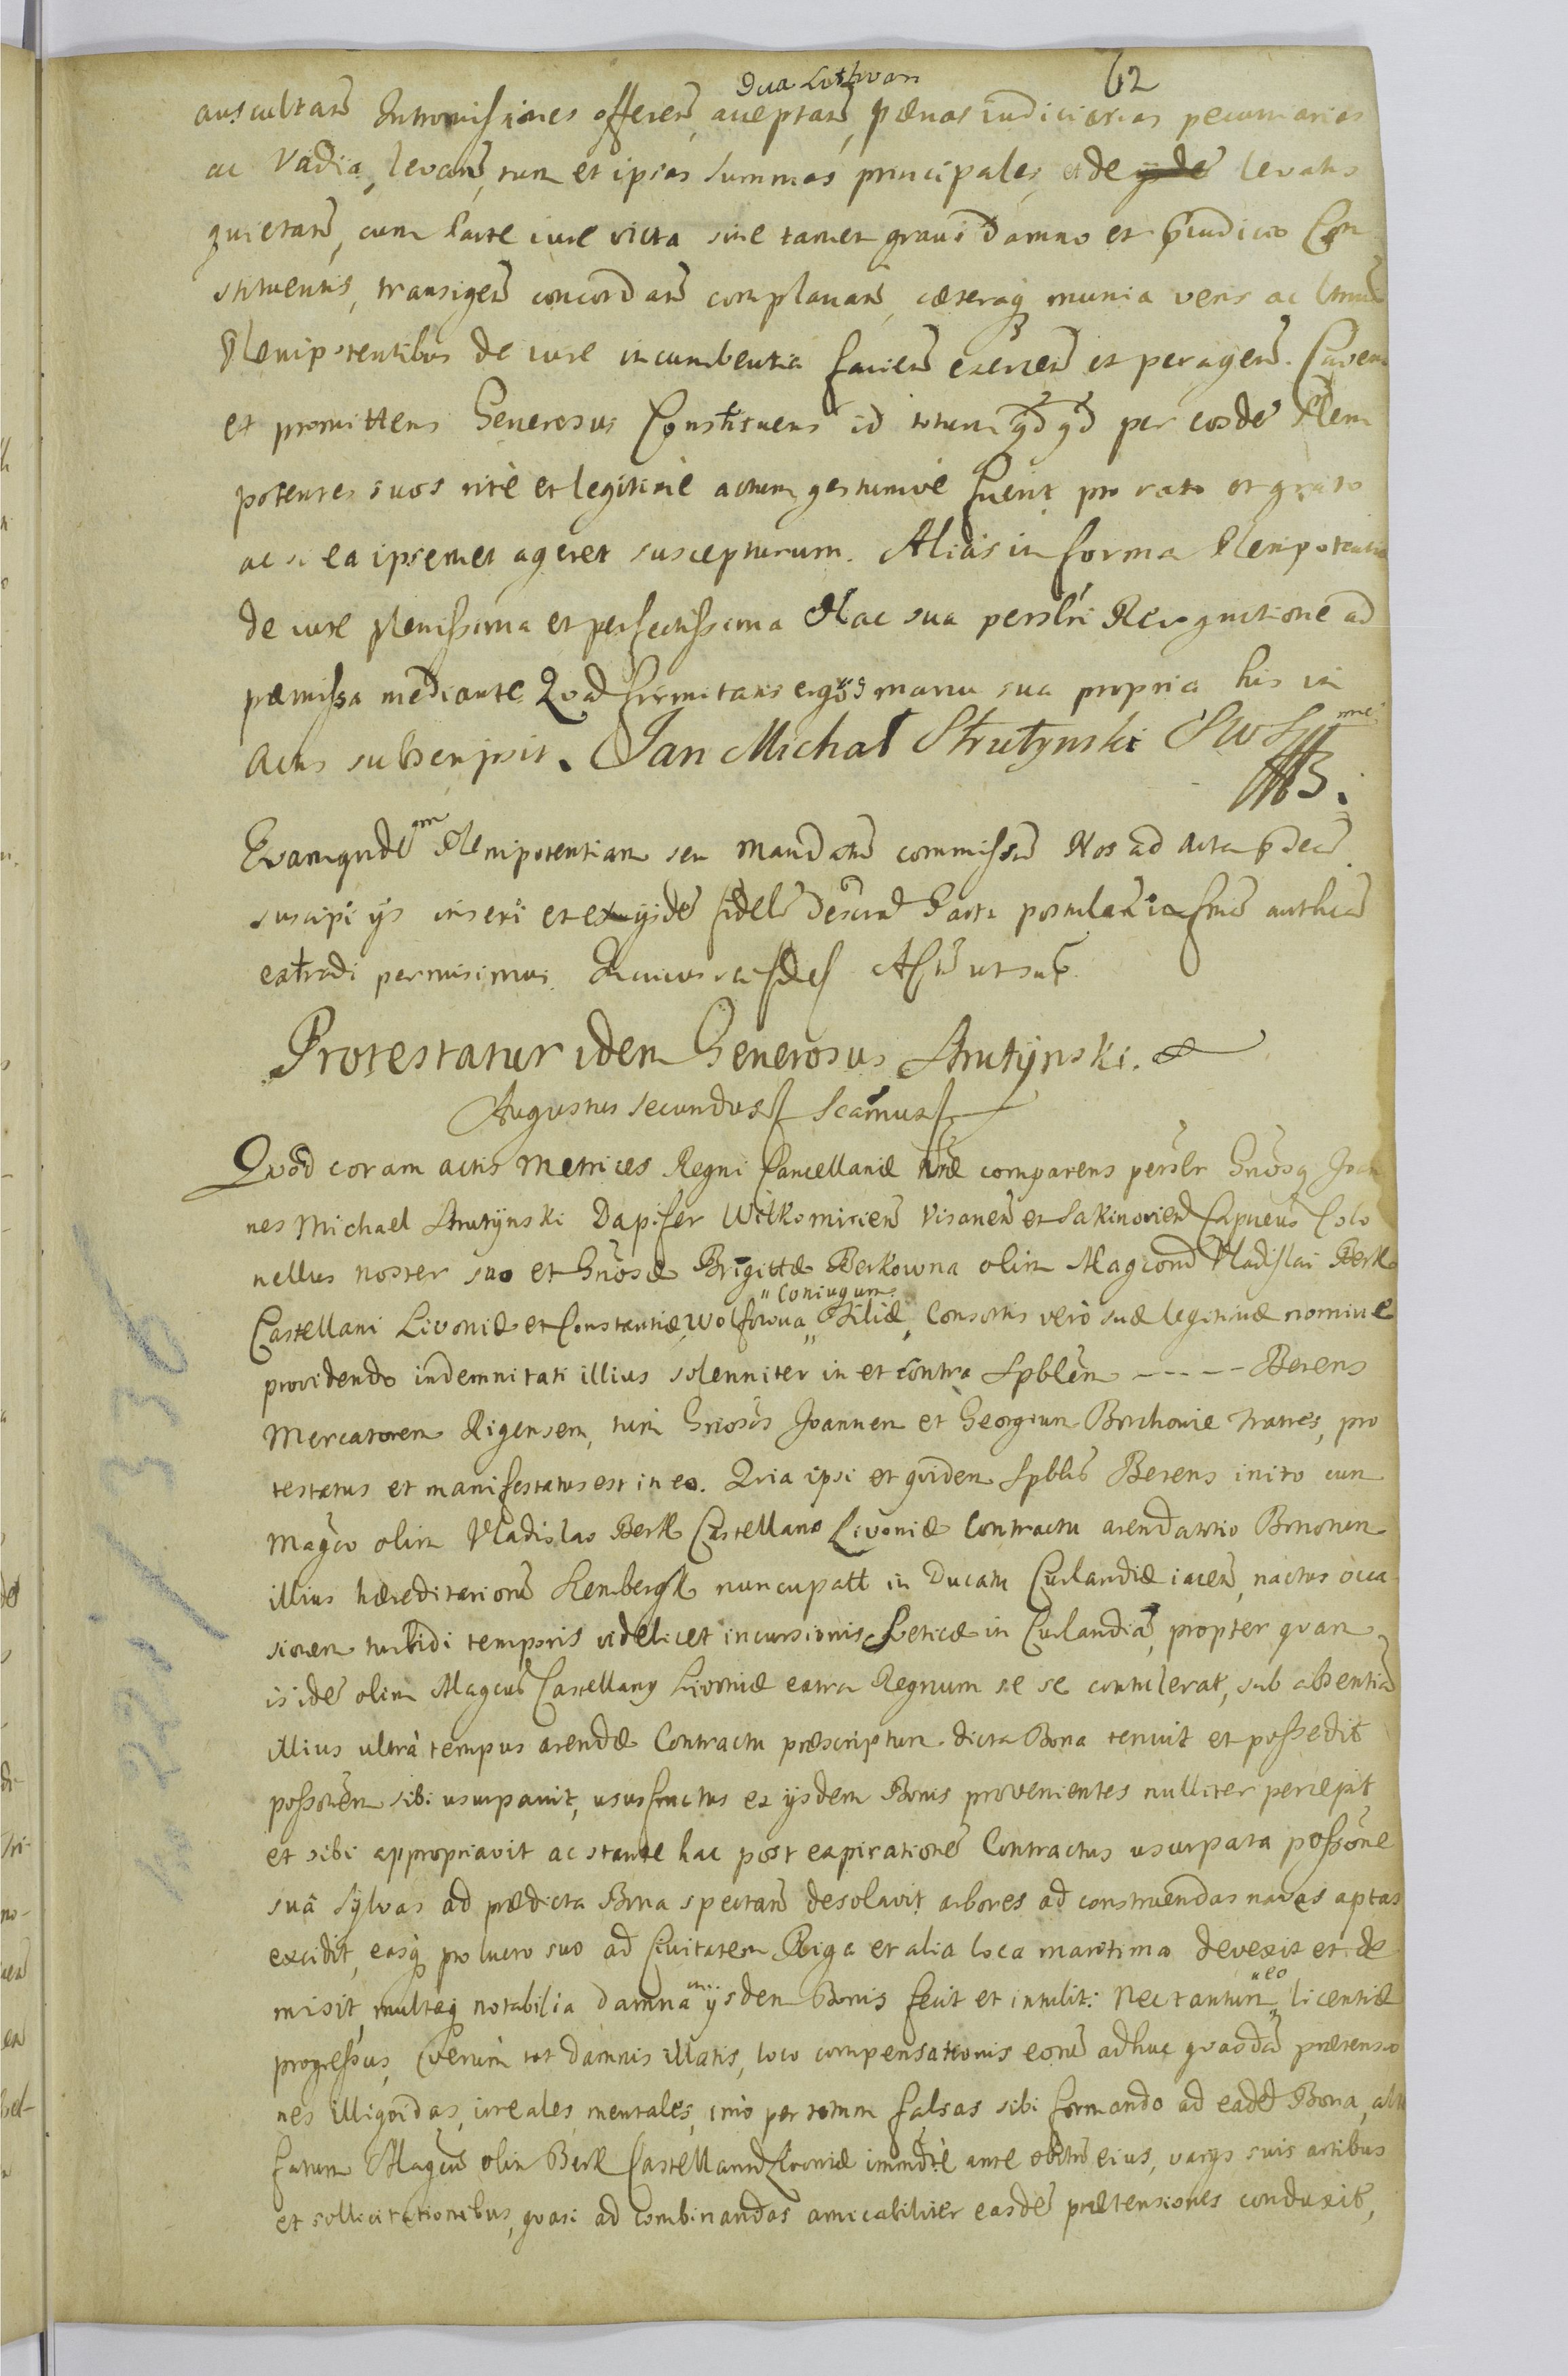 62
Dua Lothvan
auscultan̄ Intromissiones offeren̄, acceptan̄, pænas iudiciarias pecuniarias
ac Vadia, levan̄, tum et ipsas summas principales, et de levatis
quietan̄, cum Parte iure victa sine tamen gravi damno et p̄iudicio Con
stituentis, transigen̄ concordan̄ complanan̄, cæteraq munia veris ac
Plenipotentibus de iure incumbentia facien̄ exercen̄ et peragen̄. Caven
et promittens Generosus Constituens id totum qd̄qd̄ per eosdē Pleni
potentes suos ritè et legitimè actum gestumvè fuerit pro rato et grato
ac si ea ipsemet ageret suscepturum. Aliàs in forma Plenipotentiæ
de iure plenissima et perfectissima Hac sua persl̄ri Recognitione ad
præmissa mediante Quod firmitatis ergò manu sua propria his in
Actis subscripsit. Jan Michał Strutynski SWS mc
Evamqude qm Plenipotentiam seu Mandatū commissū Nos ad Acta
suscipi ijs inseri et ex ijsdē fidelr̄ descriptā Parti postulanti in
extradi permisimus. In cuius rei fidē Actū ut supr.
Protestatur idem Generosus Strutÿnski.
Augustus secundus Scām̄us
Quod coram actis Metrices Regni Cancellariæ nr̄æ comparens persl̄r Gn̄osq Joan
nes Michael Strutÿnski Dapifer Wilkomirien̄ Visanen̄ et Sakinovien̄ Capneus Colo
nellus noster suo et Gn̄osæ Brigittæ Berkowna olim Magcord Vladislai Berk
Castellani Livoniæ et Constantiæ Wolfowna " Coniugum " Filiæ, Consortis verò suæ legitimæ nomine
providendo indemnitati illius solenniter in et contra Spblēm ----- Berens
Mercatorem Rigensem, tum Gn̄osos Joannem et Georgium Borchowie fratres, pro
testatus et manifestatus est in eo. Quia ipsi et quidem Spblīs Berens inito cum
Magco olim Vladislao Berk Castellano Livoniæ Contractu arendatorio Bonorum
illius hæreditariorū Lembergk nuncupatt in Ducatu Curlandiæ iacen̄, nactus occa
sionem turbidi temporis videlicet incursionis Sveticæ in Curlandiā, propter quam
is idē olim Magcus Castellanq Livoniæ extra Regnum se se contulerat, sub absentiā
illius ultrà tempus arendæ Contractu præscriptum dicta Bona tenuit et possedit
possonēm sibi usurpavit, ususfructus ex ijsdem Bonis provenientes nulliter percepit
et sibi appropriavit ac stante hac post expirationē Contractus usurpata possōne
suâ Sylvas ad prædicta Bona spectan̄ desolavit arbores ad construendas naves aptas
excidit, easq pro lucro suo ad Civitatem Riga et alia loca maritima devexit et de
misit, multaq notabilia damna in ijsdem Bonis fecit et intulit: Nec tantum " eo licentiæ
progressus, Verum tot damnis illatis, loco compensationis eorū adhuc quasdā prætensio
nes illiquidas, ireales, mentales, imò per totum falsas sibi formando ad eadē Bona, ante
fatum Magcū olim Berk Castellanū Livoniæ immdtè ante obitū eius, varijs suis artibus
et sollicitationibus, quasi ad combinandas amicabiliter easdē prætensiones conduxit,